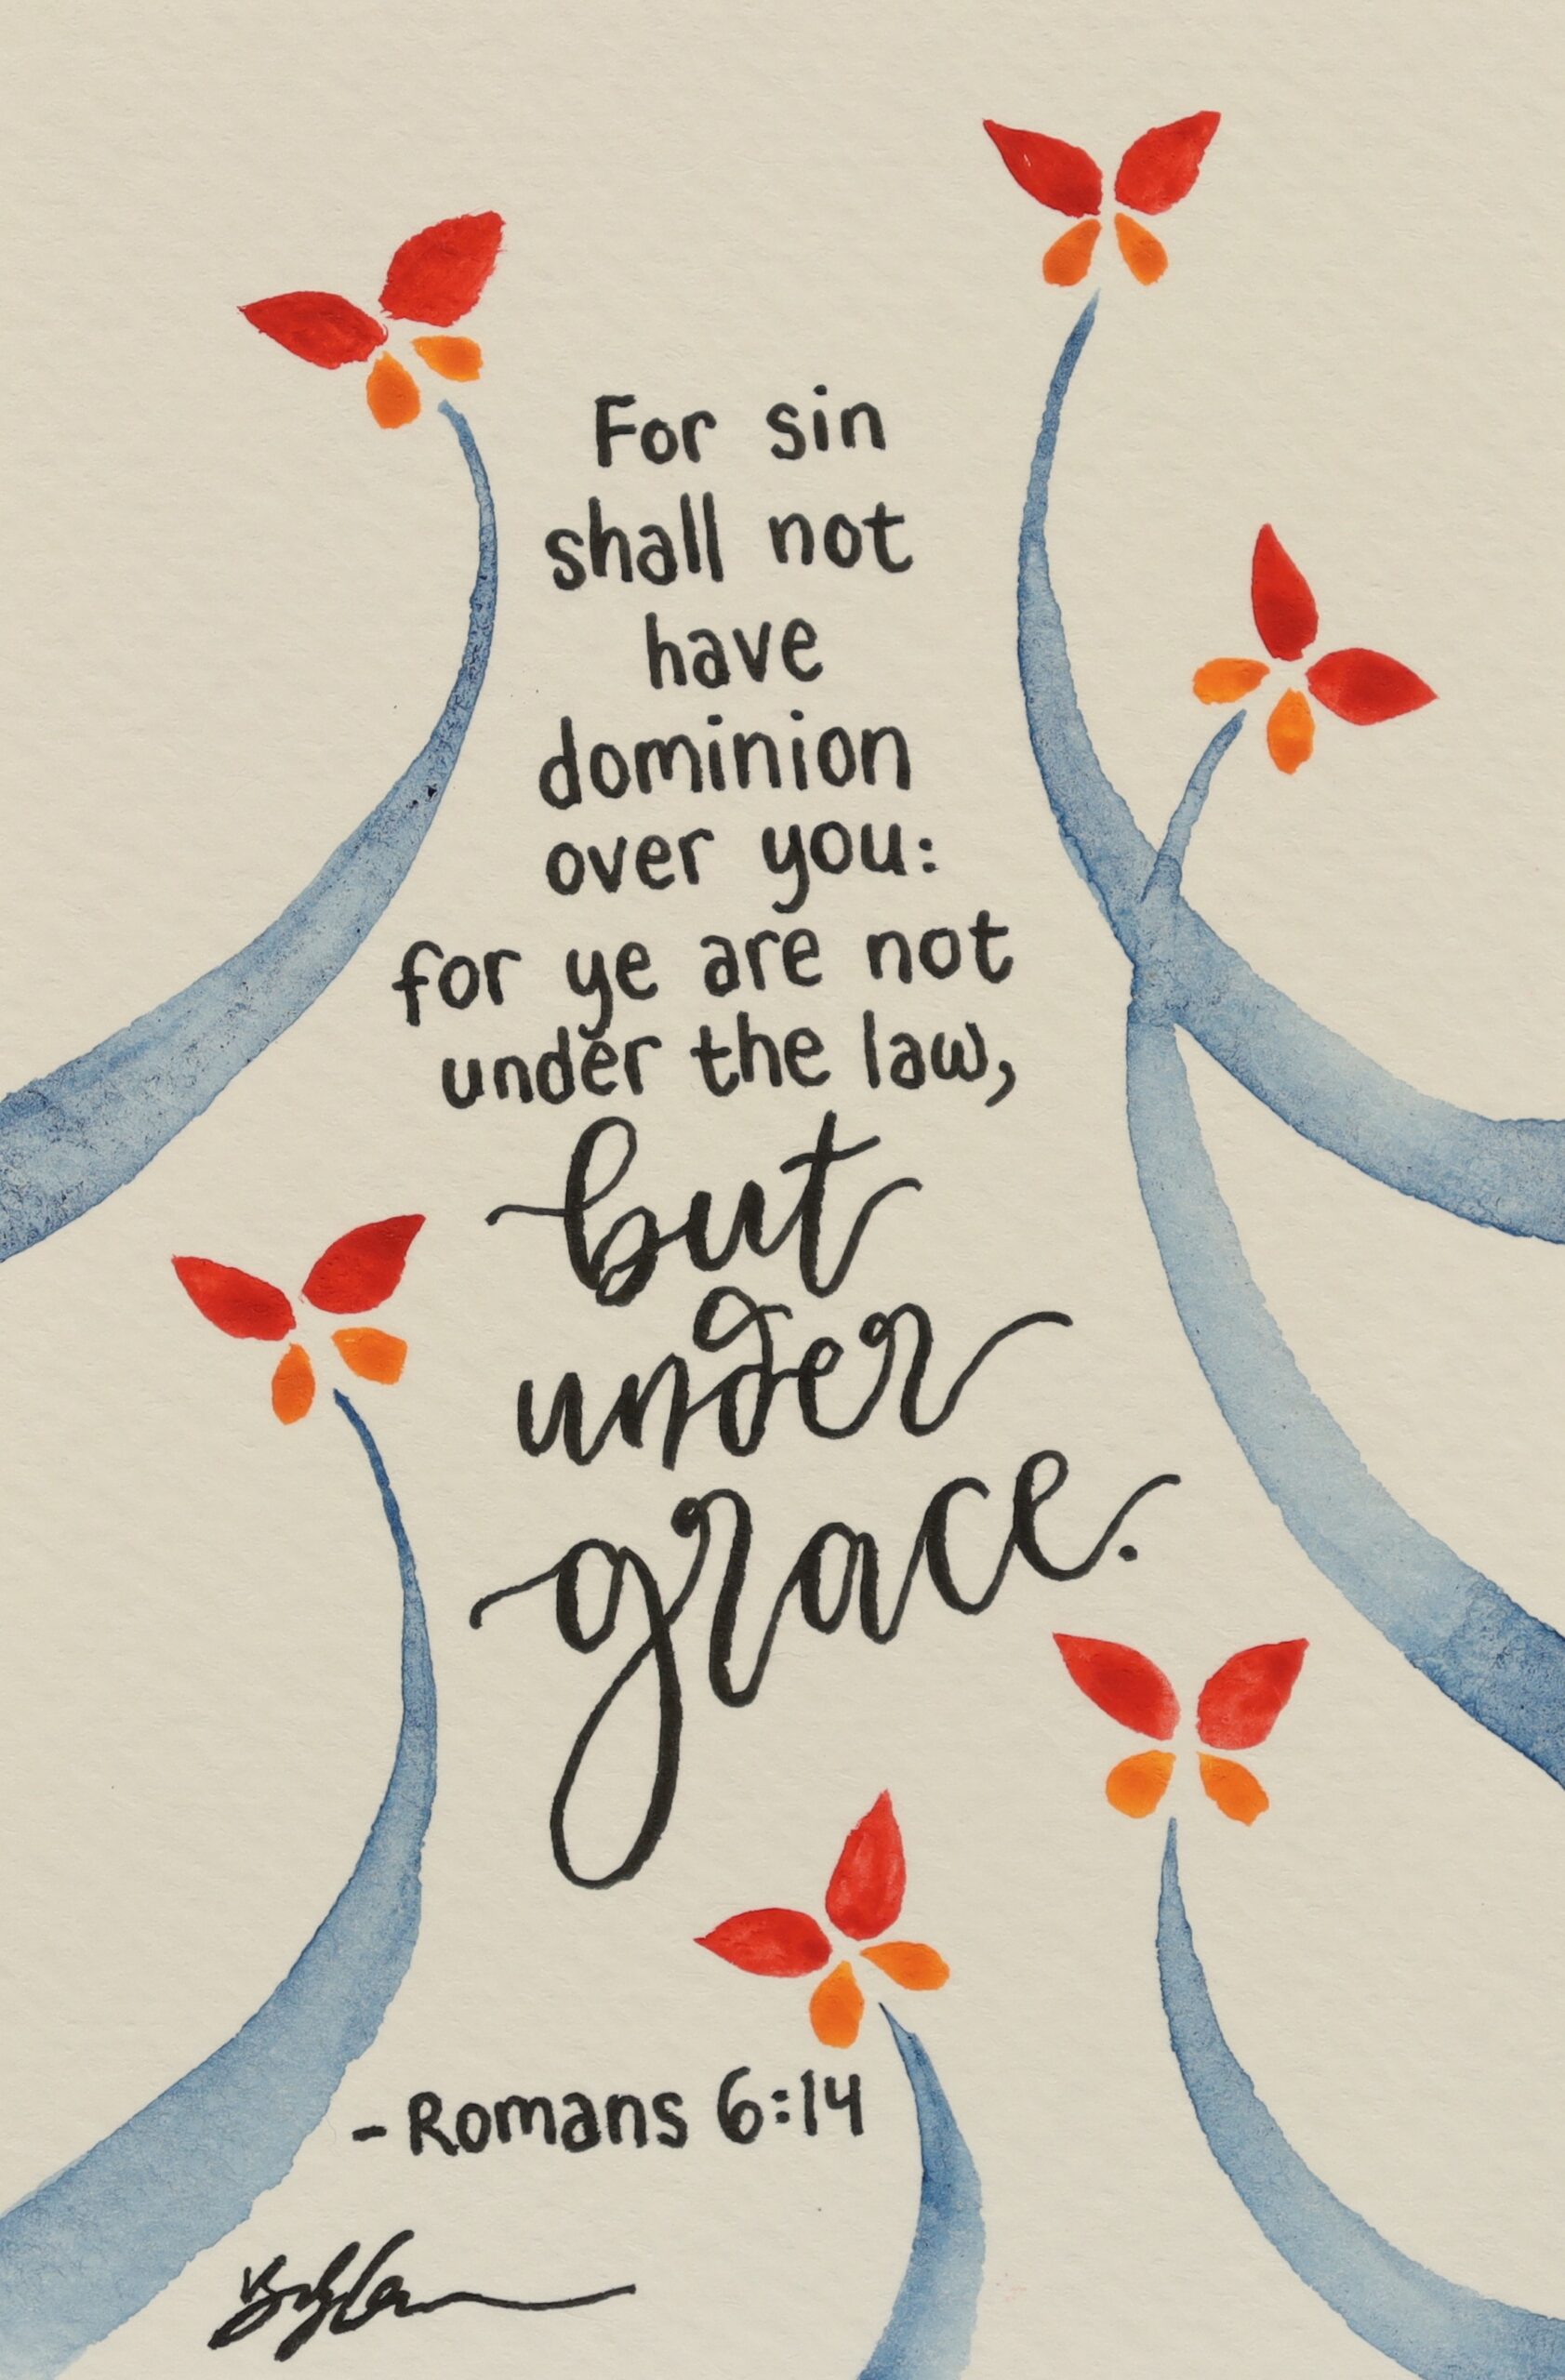 For sin
shall not
have
dominion
over you:
for ye are not
under the law,
but
under
grace.
- Romans 6:14